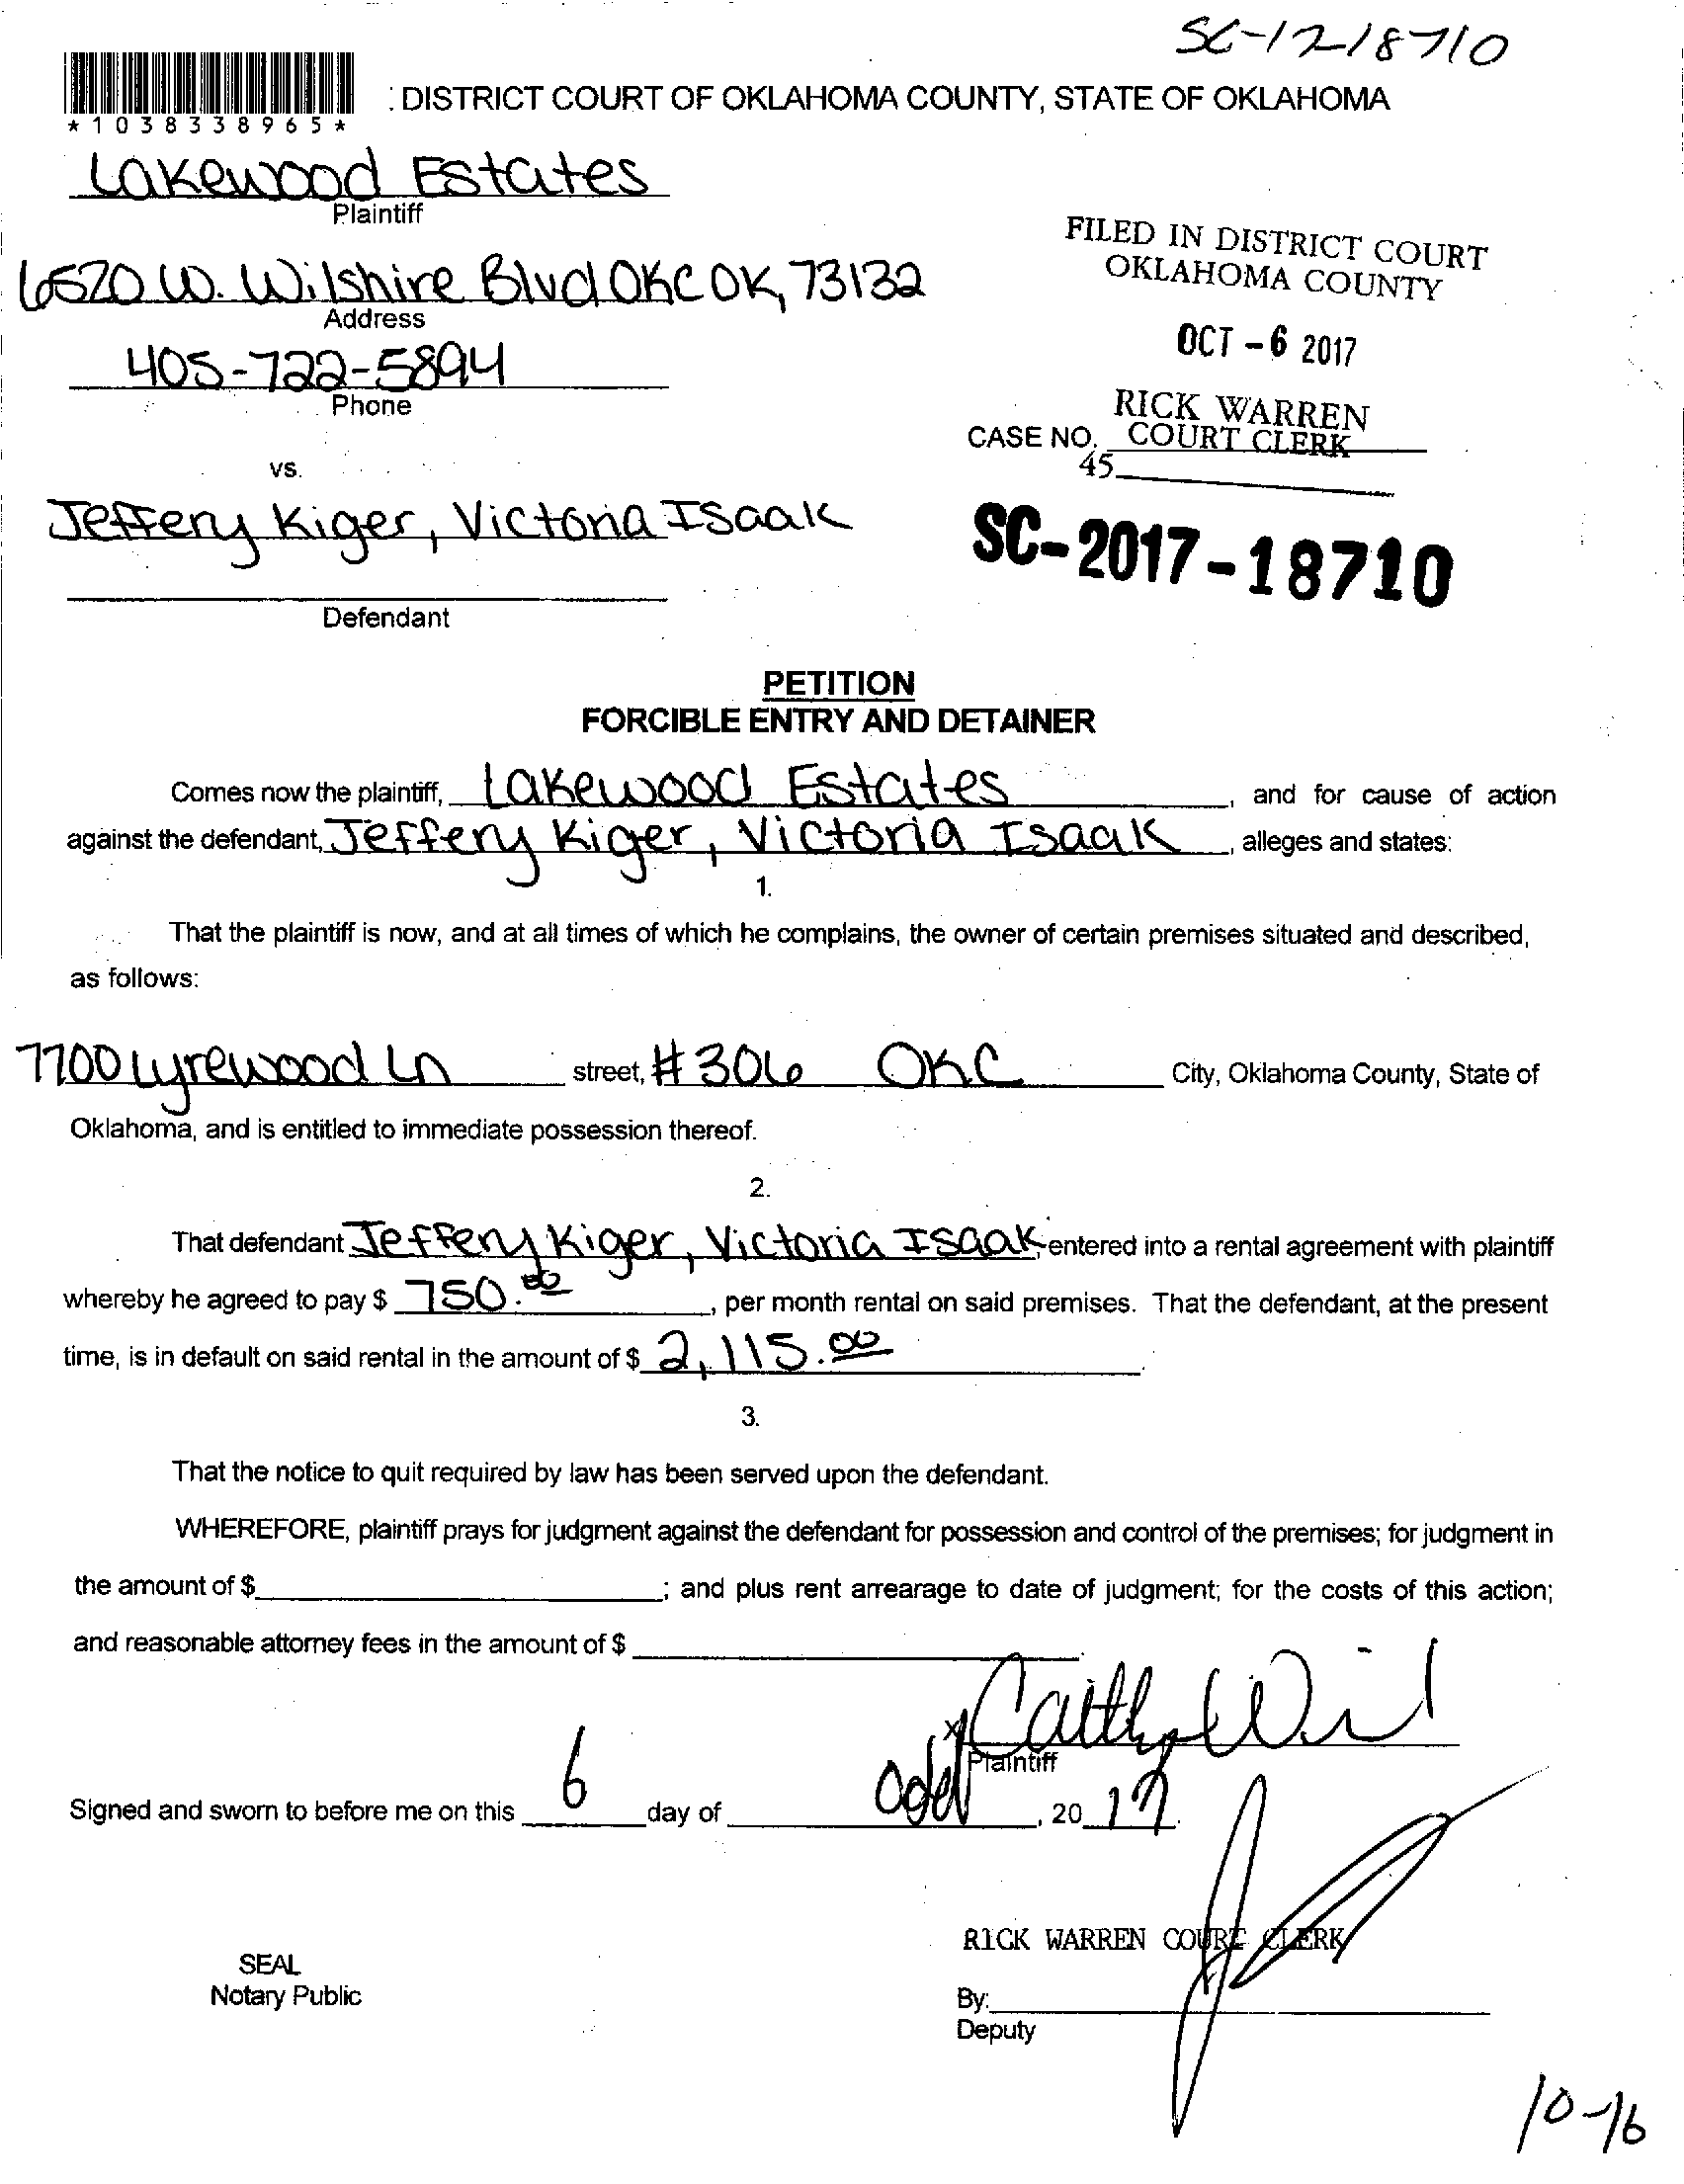 SC-17-18710
*1038338965*
: DISTRICT COURT OF OKLAHOMA COUNTY, STATE OF OKLAHOMA
Lakewood Estates
Plaintiff
6520 W. Wilshire Blvd OKC OK, 73132
Address
405-722-5894
Phone
FILED IN DISTRICT COURT
OKLAHOMA COUNTY
OCT -6 2017
RICK WARREN
COURT CLERK
CASE NO.
45
vs.
Jeffery Kiger, Victoria Isaak
SC-2017-18710
Defendant
PETITION
FORCIBLE ENTRY AND DETAINER
Comes now the plaintiff, Lakewood Estates, and for cause of action
against the defendant, Jeffery Kiger, Victoria Isaak, alleges and states:
1.
That the plaintiff is now, and at all times of which he complains, the owner of certain premises situated and described,
as follows:
7700 Lyrewood Ln street, #306 OKC City, Oklahoma County, State of
Oklahoma, and is entitled to immediate possession thereof.
2.
That defendant Jeffery Kiger, Victoria Isaak, entered into a rental agreement with plaintiff
whereby he agreed to pay $ 750.00, per month rental on said premises. That the defendant, at the present
time, is in default on said rental in the amount of $ 2,115.00.
3.
That the notice to quit required by law has been served upon the defendant.
WHEREFORE, plaintiff prays for judgment against the defendant for possession and control of the premises; for judgment in
the amount of $ ; and plus rent arrearage to date of judgment; for the costs of this action;
and reasonable attorney fees in the amount of $ .
x
Plaintiff
Signed and sworn to before me on this 6 day of , 20 17.
RICK WARREN COURT CLERK
SEAL
Notary Public
By:
Deputy
10-16